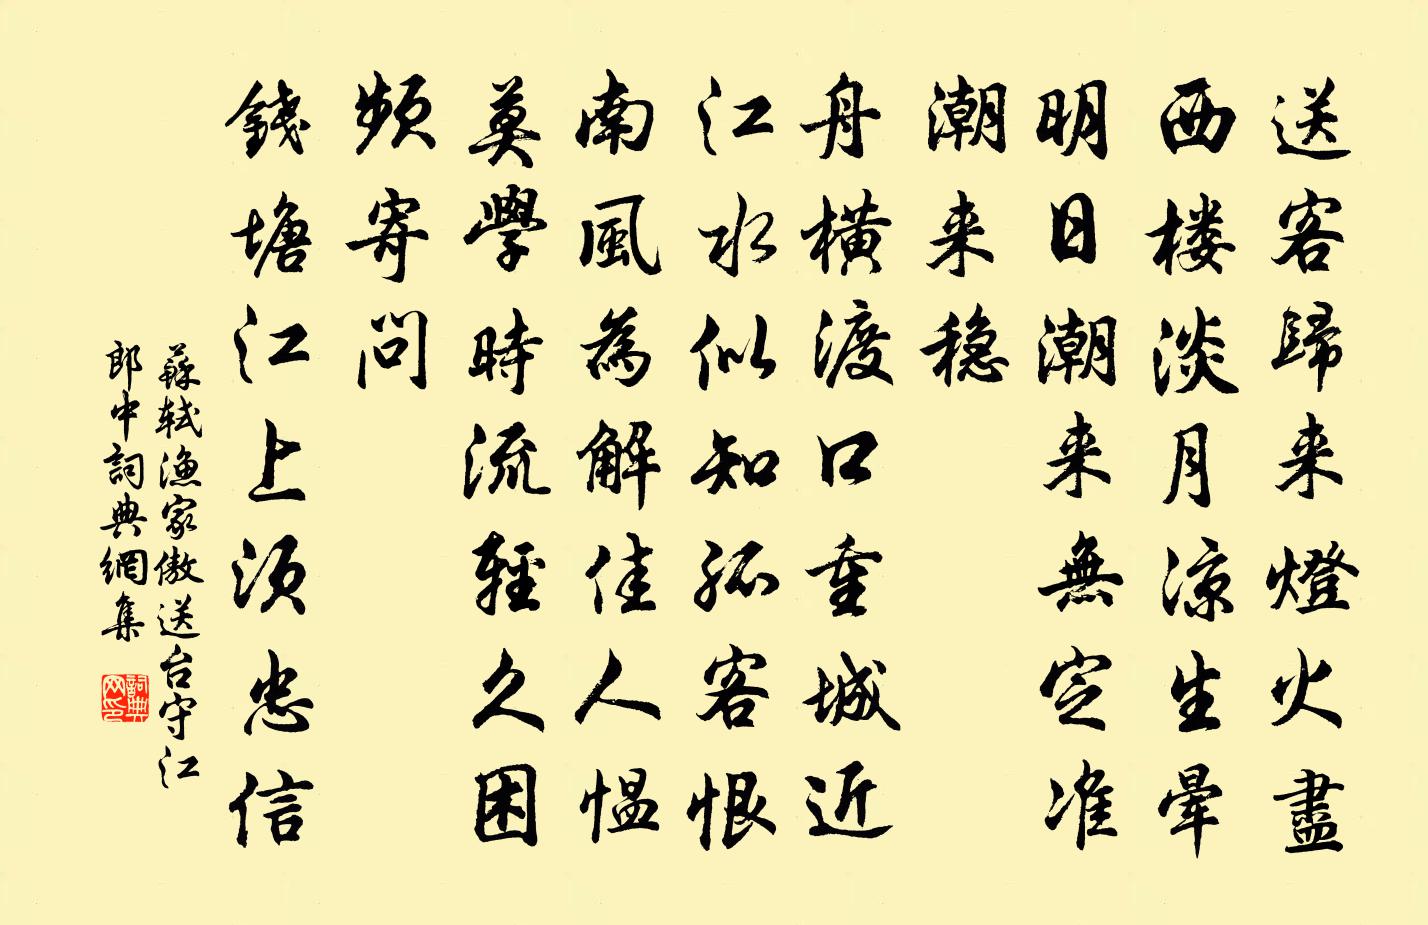 送客歸来燈火盡
西楼淡月涼生暈
明日潮来無定准
潮来稳
舟横渡口重城近
江水似知孤客恨
南風為解佳人愠
莫學時流輕久困
頻寄問
錢塘江上須忠信
蘇轼漁家傲送台守江
郎中詞典網集
詞典
网印